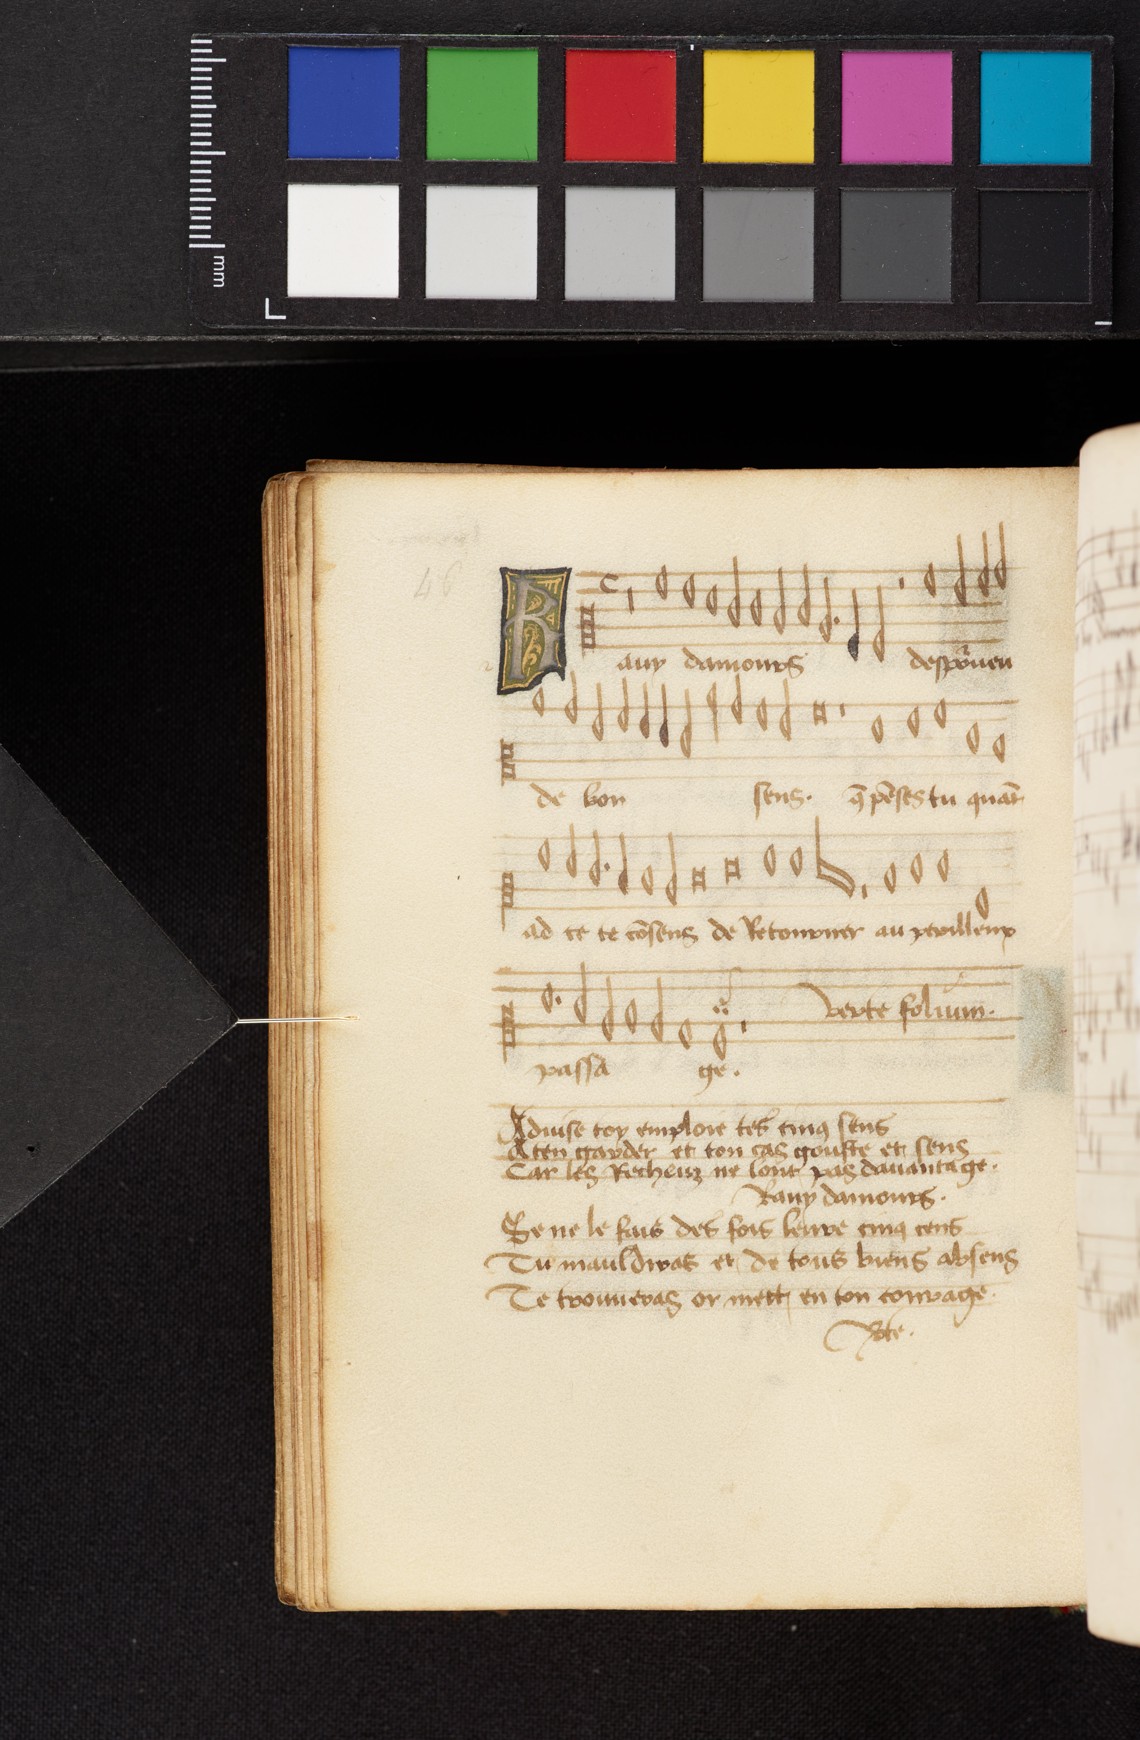 mm
46
Rauy damours despõueu
de bon sens. q̃ pẽses tu quãt
ad ce te cõsens de Retourner au perilleux
passa ge.
verte folium.
Aduise toy emploie tes cinq sens
A ten garder et ton cas gouste et sens
Car les Recheuz ne lont pas dauantage.
Rauy damours.
Se ne le fais des fois leure cinq cens
Tu mauldiras et de tous biens absens
Te trouueras or mett en ton courage.